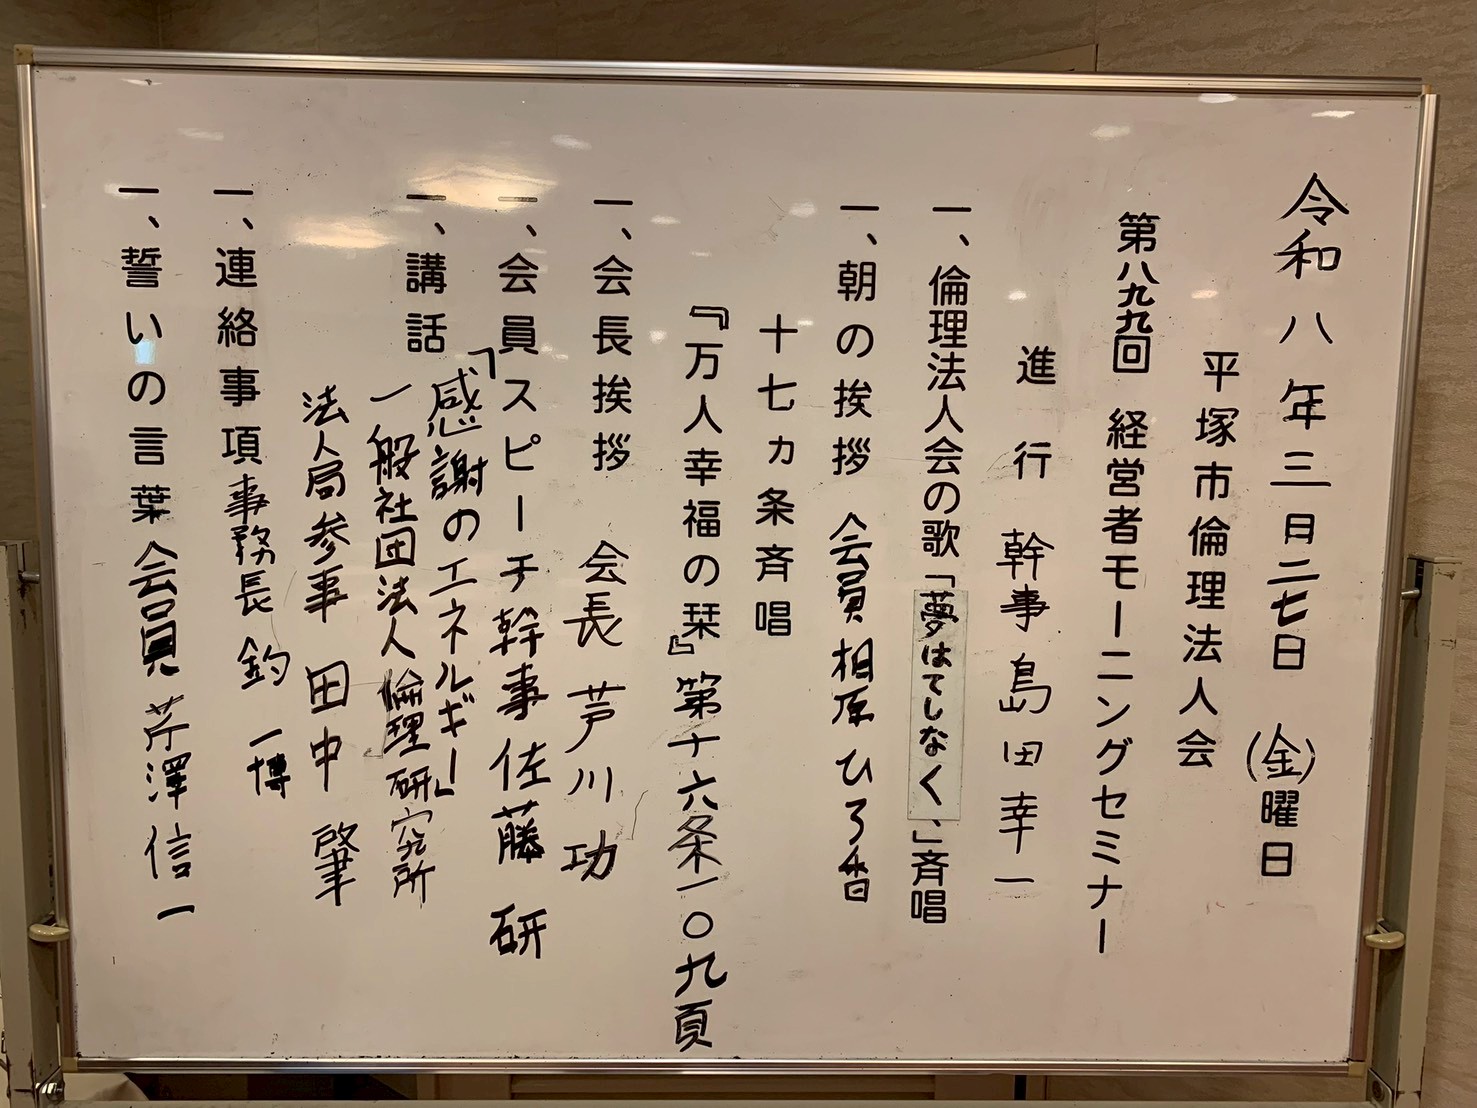 令和八年三月二七日(金)曜日
平塚市倫理法人会
第八九九回 経営者モーニングセミナー
進行 幹事 島田幸一
一、倫理法人会の歌「夢はてしなく、」斉唱
一、朝の挨拶 会員 相原ひろ香
十七ヵ条斉唱
『万人幸福の栞』第十六条一〇九頁
一、会長挨拶 会長 芦川 功
一、会員スピーチ 幹事 佐藤 研
一、講話「感謝のエネルギー」
一般社団法人倫理研究所
法人局参事 田中 肇
一、連絡事項 事務長 釣 一博
一、誓いの言葉 会員 芹澤信一